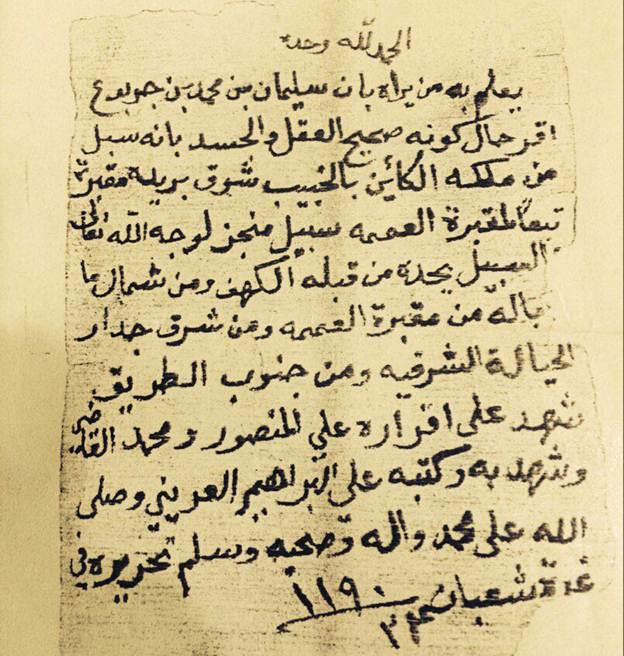 الحمد لله وحده
يعلم به من يراه بان سليمان بن محمد بن جربوع
اقر حال كونه صحيح العقل والجسد بانه سبل
من ملكه الكائن بالخبيب شرق بريدة مقبرة
تبعاً لمقبرة العميه سبيل منجز لوجه الله تعالى
السبيل يحده من قبله الكهف ومن شمال ما
باله من مقبرة العميه ومن شرق جدار
الحيالة الشرقيه ومن جنوب الطريق
شهد على اقراره علي المنصور ومحمد القاضي
وشهد به وكتبه علي البراهيم العريني وصلى
الله على محمد واله وصحبه وسلم تحريره في
غرة شعبان ١١٩٠